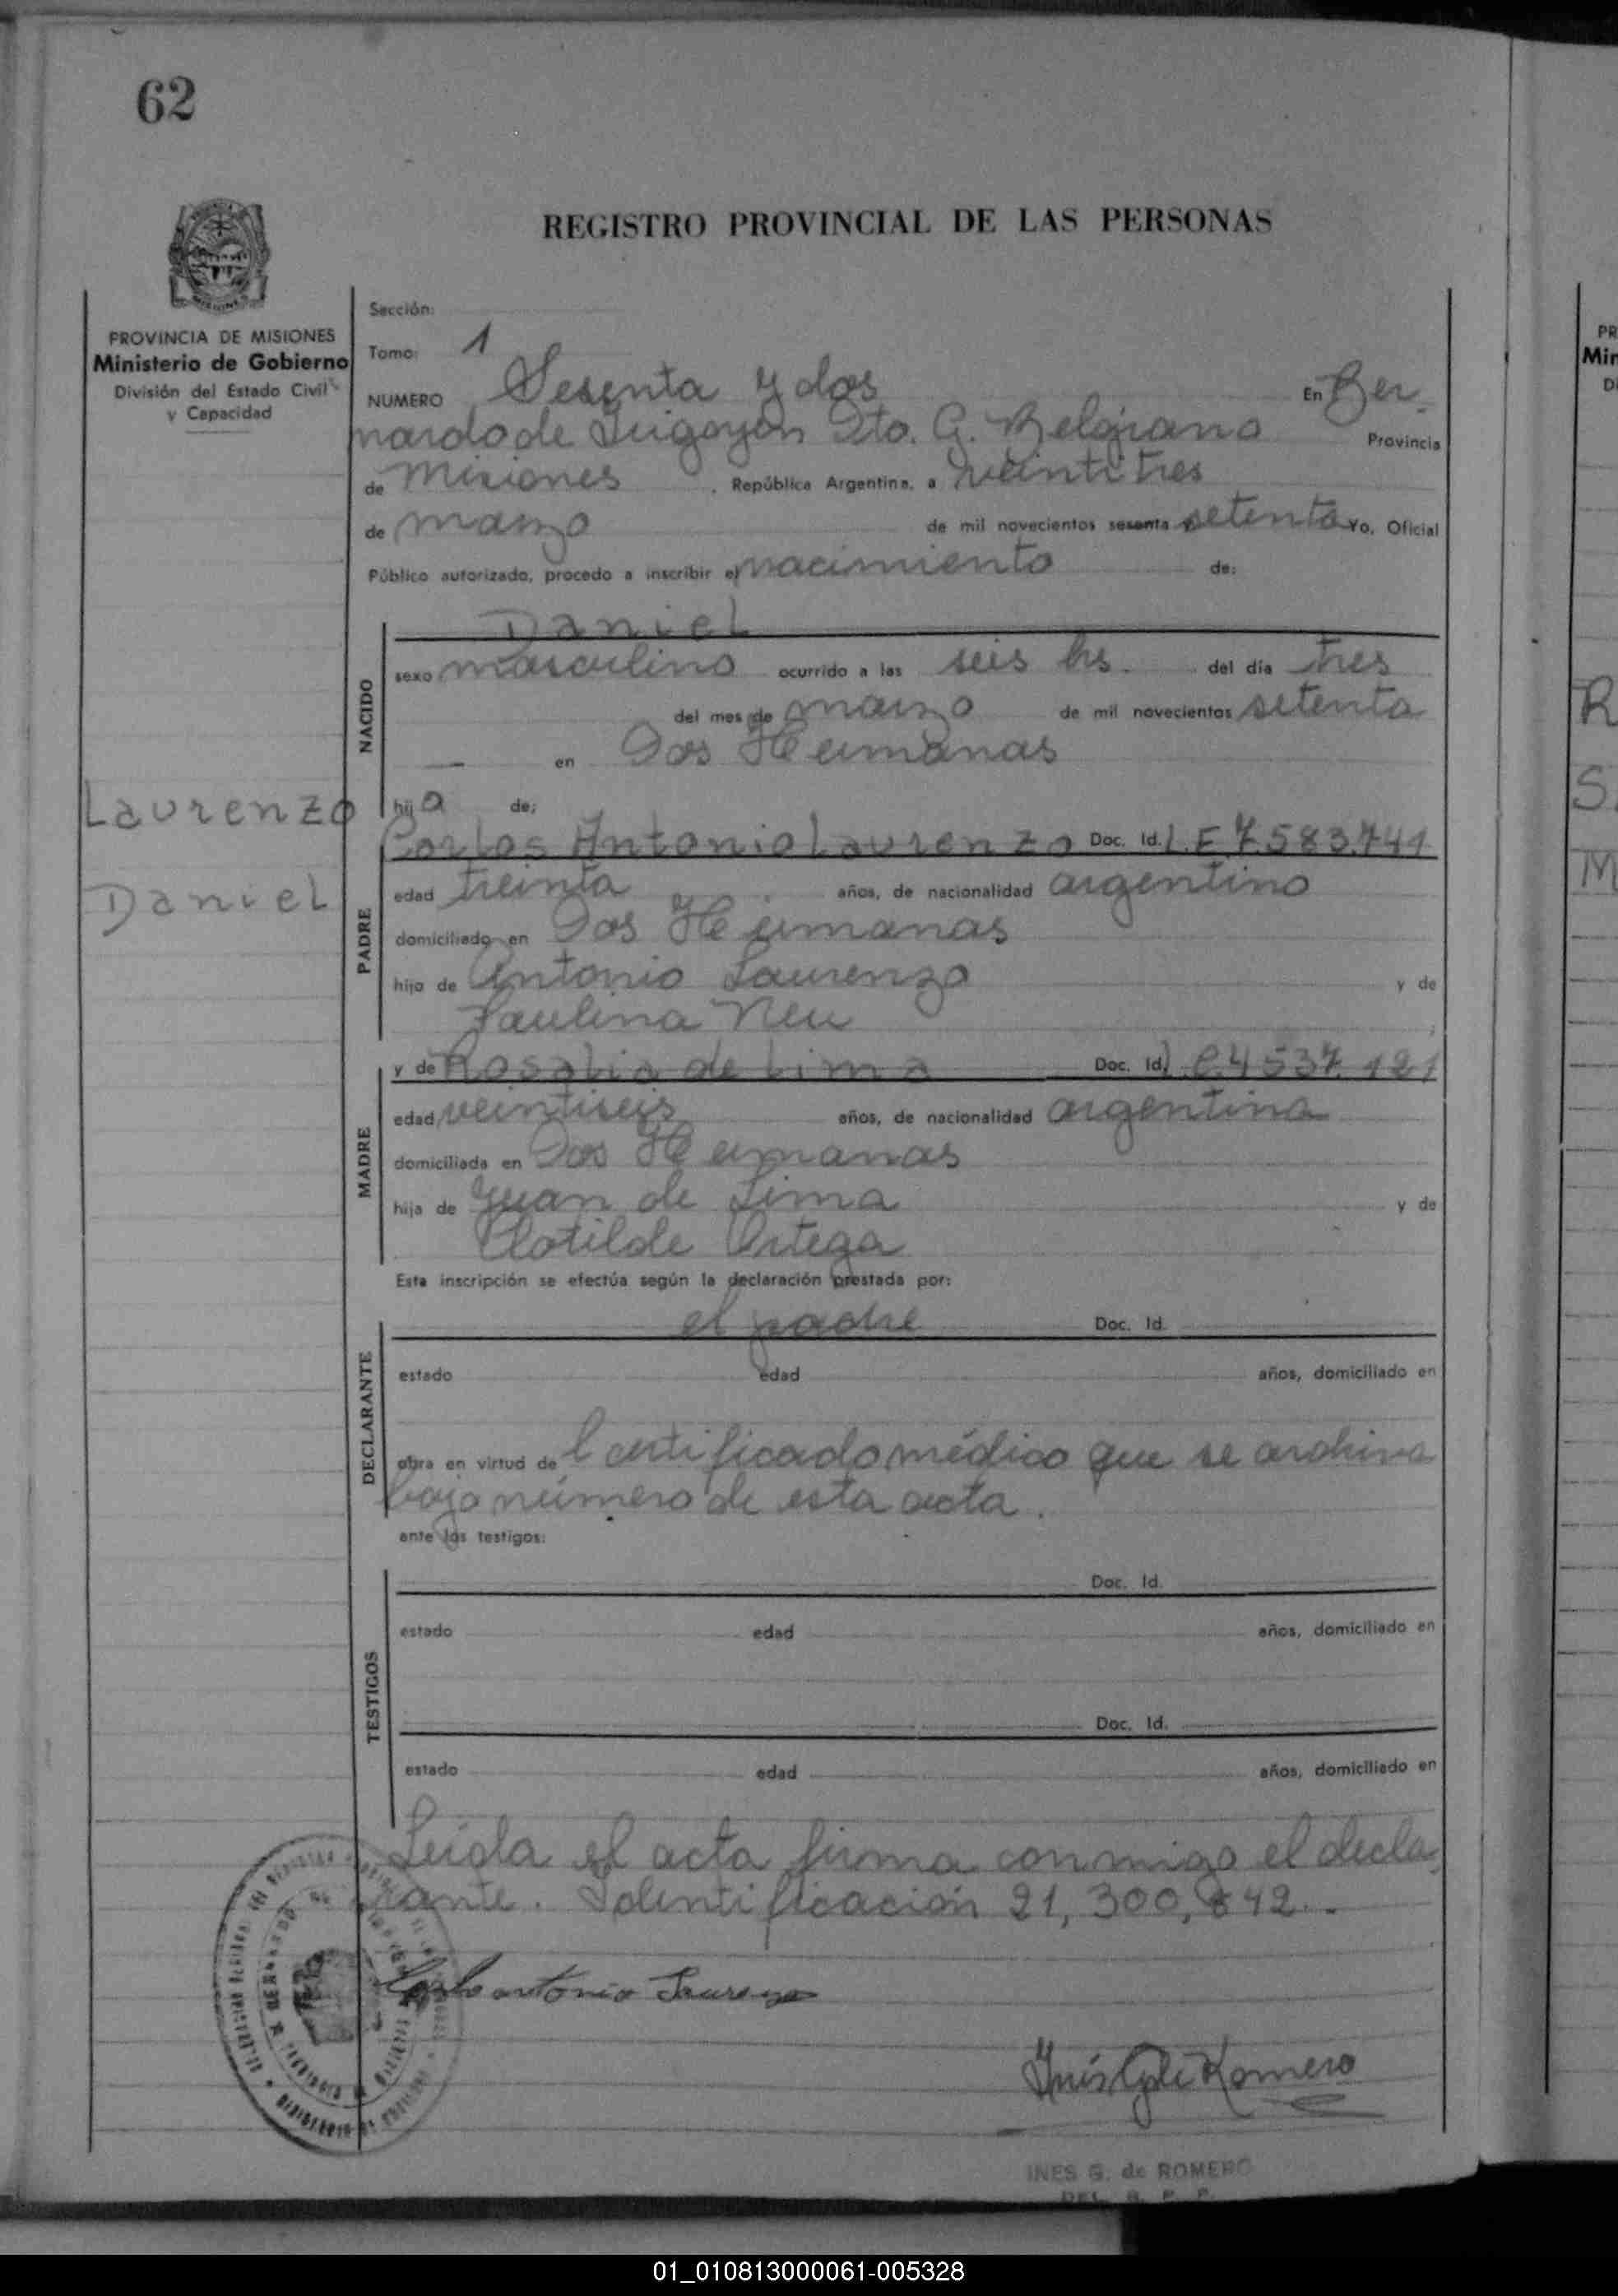 62
REGISTRO PROVINCIAL DE LAS PERSONAS
PROVINCIA DE MISIONES
Ministerio de Gobierno
División del Estado Civil
y Capacidad
Sección:
Tomo: 1
NUMERO Sesenta y dos En Ber-
nardo de Irigoyen Dto. G. Belgrano Provincia
de Misiones, República Argentina, a veintitres
de marzo de mil novecientos sesenta setenta Yo, Oficial
Público autorizado, procedo a inscribir el nacimiento de:
Daniel
NACIDO
sexo masculino ocurrido a las seis hs. del día tres
del mes de marzo de mil novecientos setenta
— en Dos Hermanas
Laurenzo
Daniel
hijo de:
Carlos Antonio Laurenzo Doc. Id. L.E 7.583.741
PADRE
edad treinta años, de nacionalidad argentino
domiciliado en Dos Hermanas
hijo de Antonio Laurenzo y de
Paulina Neu
y de Rosalia de Lima Doc. Id. 4537.121
MADRE
edad veintiseis años, de nacionalidad argentina
domiciliada en Dos Hermanas
hija de Juan de Lima y de
Clotilde Ortega
Esta inscripción se efectúa según la declaración prestada por:
el padre Doc. Id.
DECLARANTE
estado edad años, domiciliado en
obra en virtud del certificado médico que se archiva
bajo número de esta acta.
ante los testigos:
Doc. Id.
TESTIGOS
estado edad años, domiciliado en
Doc. Id.
estado edad años, domiciliado en
Leída el acta firma conmigo el decla-
rante. Identificación 21,300,842.-
Carlo antonio Laurenzo
Inés G de Romero
INES G. de ROMERO
DEL. R. P. P.
01_010813000061-005328